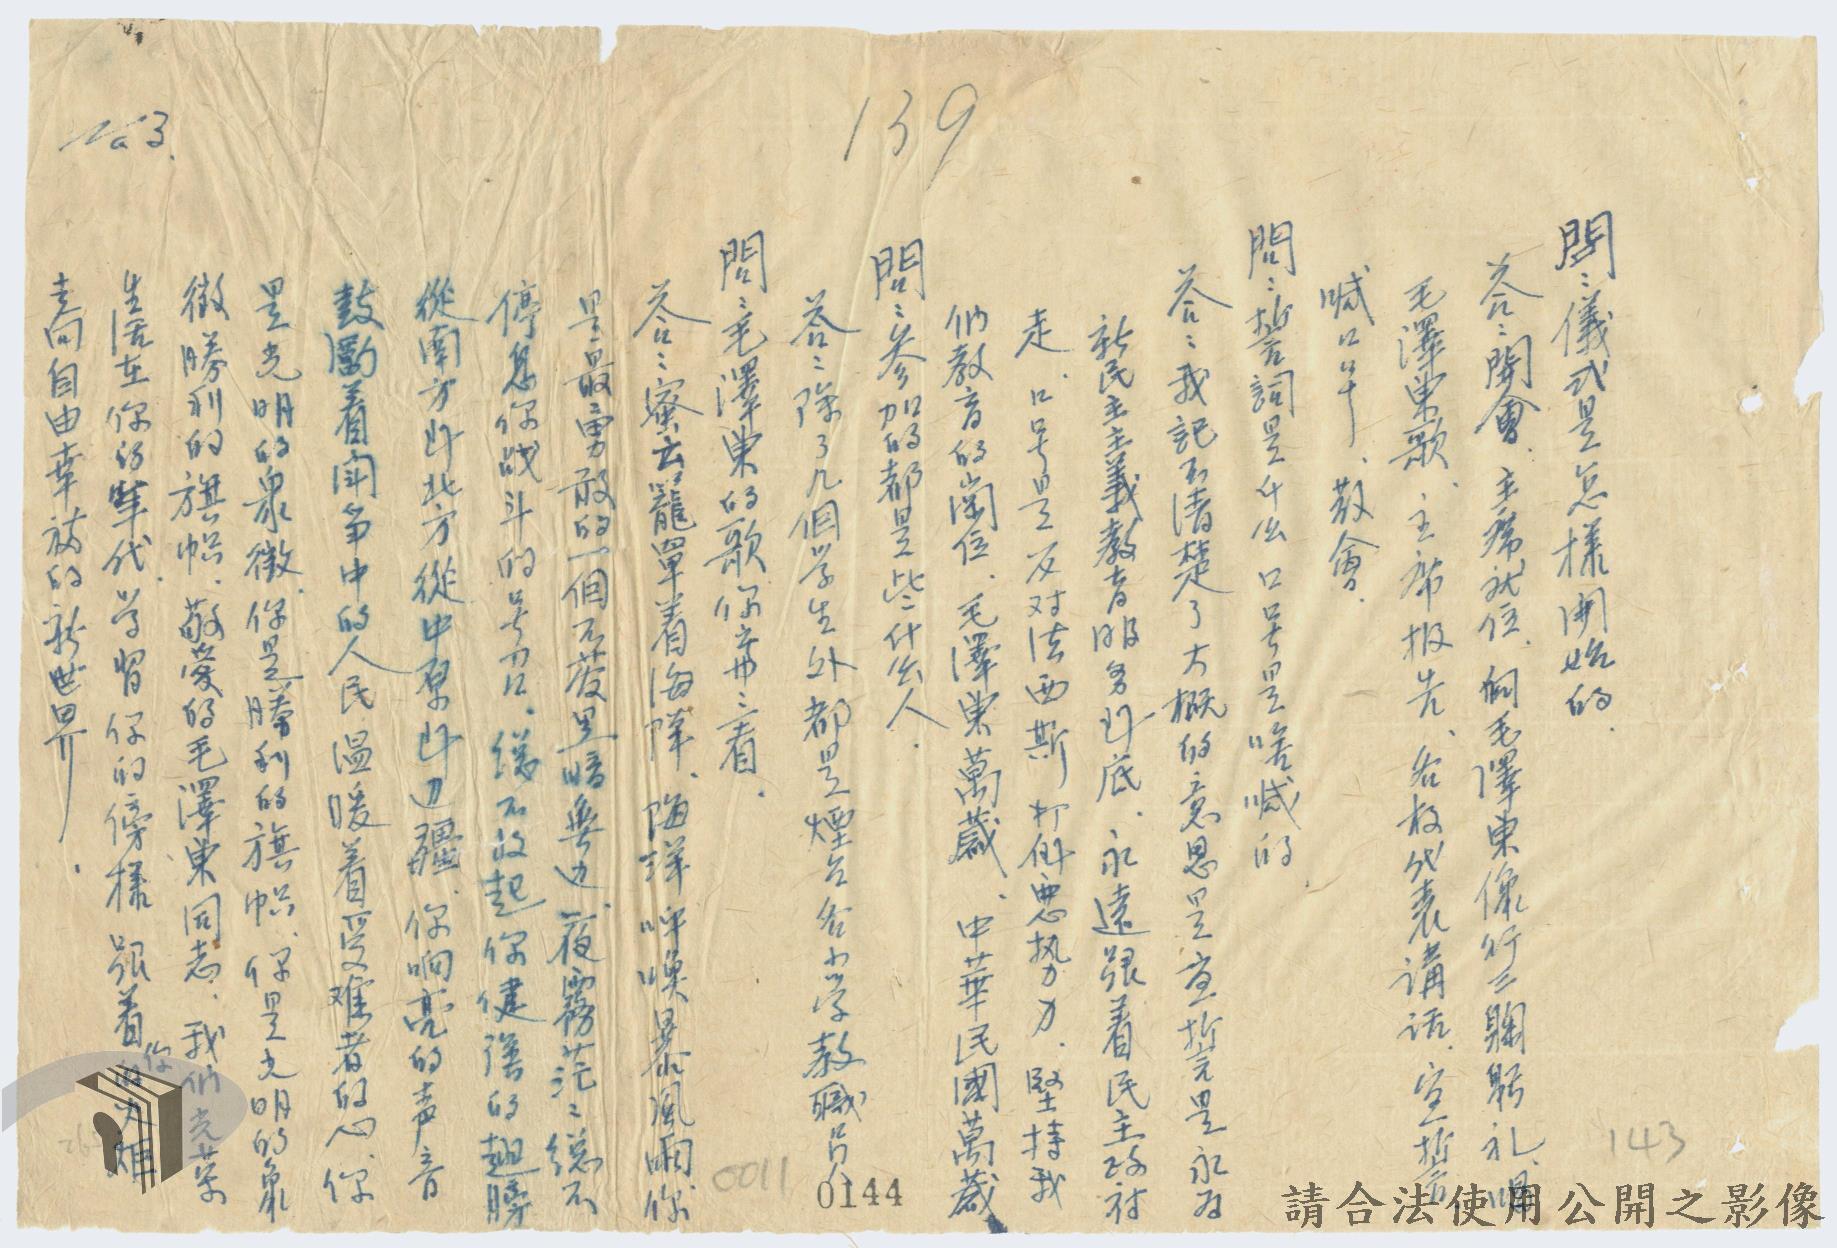 139
No 3.
問：儀式是怎樣開始的．
答：開會、主席就位、向毛澤東像行三鞠躬礼、唱
毛澤東歌、主席报告、各校代表講话、宣誓
喊口号、散會．
問：誓詞是什么口号是啥喊的．
答：我記不清楚了大概的意思是宣誓完是永为
新民主主義教育服务到底、永遠跟着民主政府
走．口号是反对法西斯打倒惡势力、堅持我
們教育的崗位、毛澤東萬歲、中華民國萬歲
問：參加的都是些什么人．
答：除了几個学生外都是煙台各小学教職员
問：毛澤東的歌你弃：看．
答：密云籠罩着海洋、海洋呼喚暴風雨你
是最勇敢的一個不管黑暗無边、夜霧茫：総不
停息你战斗的号召、総不收起你健强的翅膀
從南方到北方從中原到边疆、你响亮的声音
鼓勵着鬥争中的人民温暖着受难者的心、你
是光明的象徵、你是勝利的旗帜、你是光明的象
徵勝利的旗帜、敬爱的毛澤東同志、我們光荣
生活在你的年代、学習你的傍樣跟着你的火炬
走向自由幸福的新世界．
0011
0144
143
請合法使用公開之影像